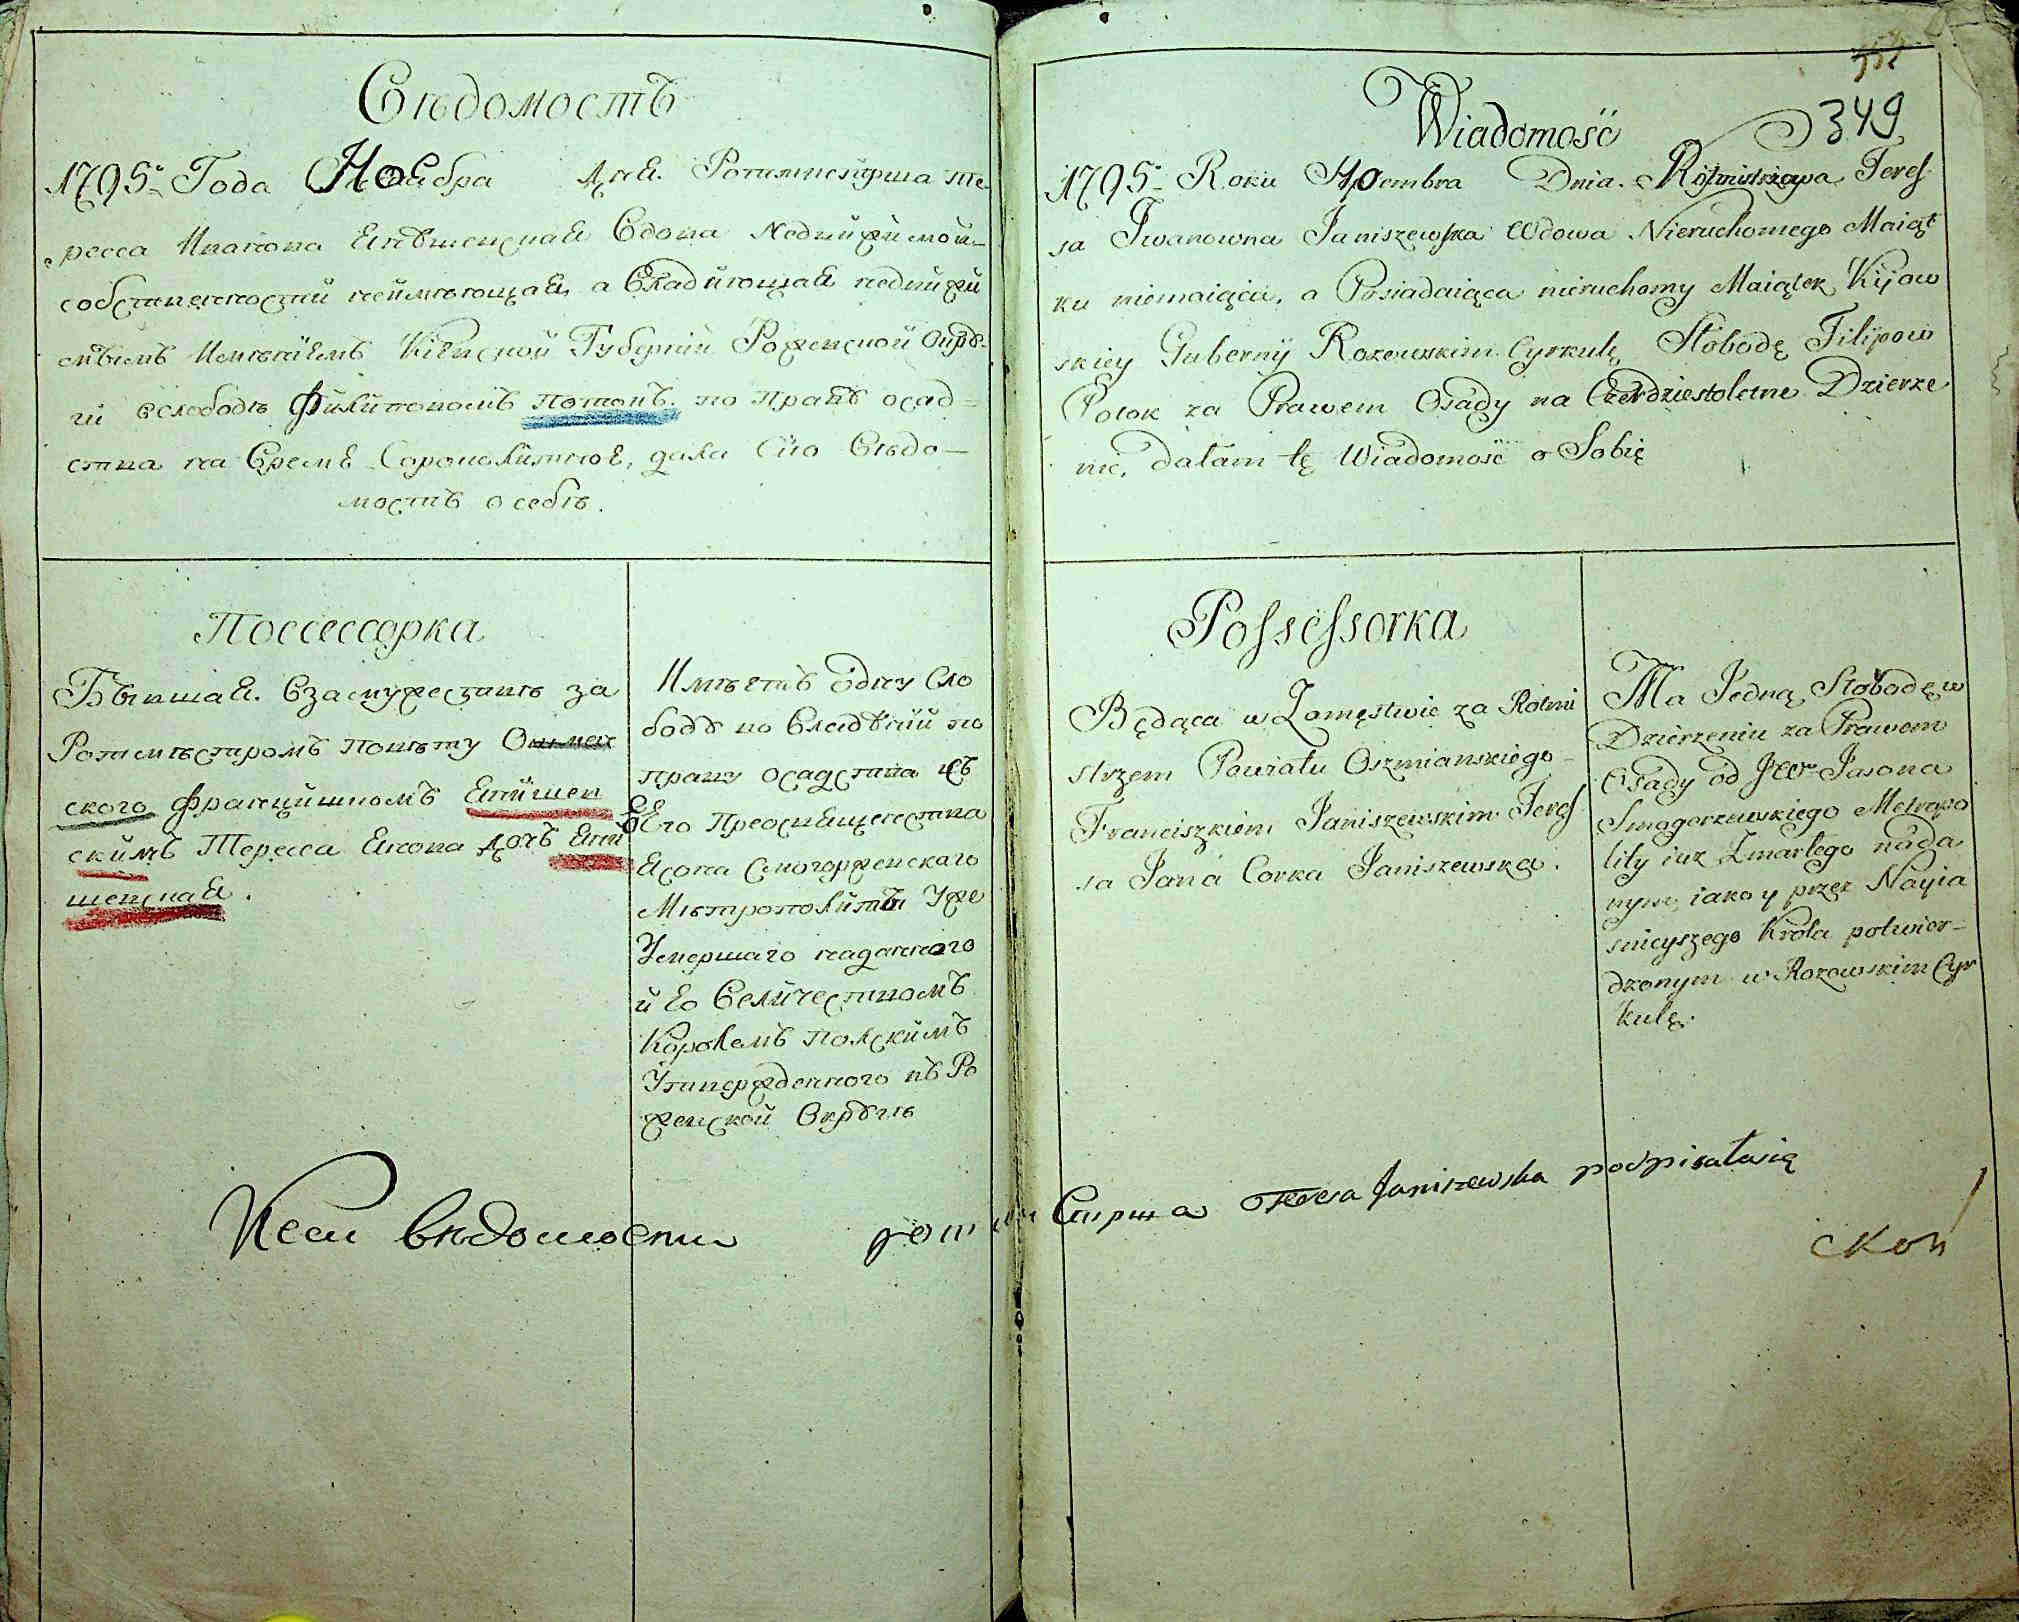 Вѣдомость
1795го Года Ноября Дня. Ротмистрша Те-
ресса Иванова Янѣшевская Вдова Недвижймой
собственностй неймѣющая, а Владйющая недвйжй
мымъ Имѣнйемъ Кіевской Губернйй Роженской Окру-
гй вслободѣ Филиповомъ Потокъ. по Праву осад-
ства на Время Сороколѣтное, дала Сію Вѣдо-
мость о себѣ.
Поссессорка
Бывшая. Взамужествѣ за
Ротмѣстромъ Повѣту Ошмян
ского Францйшкомъ Янйшев
скймъ Тересса Янова Дочь Янй
шевская.
Имѣетъ одну Сло
боду во Владѣнйй по
праву осадства изъ
Его Преосвященства
Ясона Смогоржевскаго
Мѣтрополйты Уже
Умершаго наданного
й Его Велйчествомъ
Королемъ Полскймъ
Утвержденного въ Ро
женской Округѣ
Ксей вѣдомости ротмистрша Teresa Janiszewska podpisałasię
352
349
Wiadomość
1795o Roku Noembra Dnia. Rotmistrzowa Teres
sa Iwanowna Janiszewska Wdowa Nieruchomego Maiąt
ku niemaiąca, a Posiadaiąca nieruchomy Maiątek Kijow
skiey Gubernij Rozowskim Cyrkulę Słobodę Filipow
Potok za Prawem Osady na Czterdziestoletne Dzierże
nie, dałam tę Wiadomość o Sobię
Possessorka
Będąca w Zamęstwie za Rotmi
strzem Powiatu Oszmianskiego
Franciszkiem Janiszewskim Teres
sa Jana Corka Janiszewska.
Ma Jedną Słobodę w
Dzierzeniu za Prawem
Osady od JWo Jasona
Smogorzewskiego Metropo
lity iuz Zmarłego nada
nym, iako y przez Nayia
snieyszego Krola potwier-
dzonym w Rozowskim Cyr
kulę.